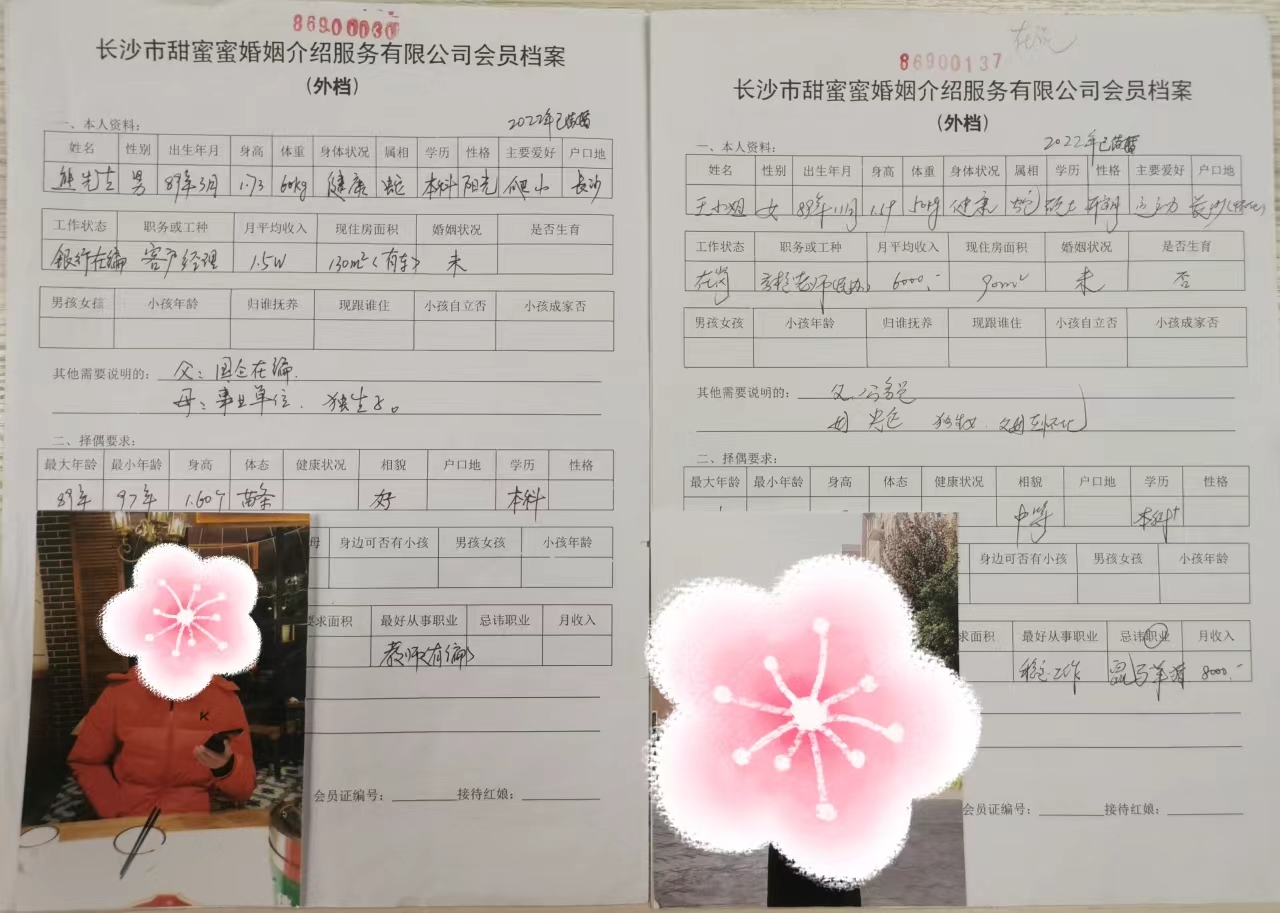 86900030
长沙市甜蜜蜜婚姻介绍服务有限公司会员档案
(外档)
一、本人资料: 2022年已结婚
姓名 性别 出生年月 身高 体重 身体状况 属相 学历 性格 主要爱好 户口地
熊先生 男 89年3月 1.73 60kg 健康 蛇 本科 阳光 爬山 长沙
工作状态 职务或工种 月平均收入 现住房面积 婚姻状况 是否生育
银行在编 客户经理 1.5W 130m²(有车) 未
男孩女孩 小孩年龄 归谁抚养 现跟谁住 小孩自立否 小孩成家否
其他需要说明的: 父:国企在编.
母:事业单位. 独生子。
二、择偶要求:
最大年龄 最小年龄 身高 体态 健康状况 相貌 户口地 学历 性格
89年 97年 1.60↑ 苗条 好 本科
母 身边可否有小孩 男孩女孩 小孩年龄
要求面积 最好从事职业 忌讳职业 月收入
教师(有编)
会员证编号: 接待红娘:
K
86900137
长沙市甜蜜蜜婚姻介绍服务有限公司会员档案
(外档)
一、本人资料: 2022年已结婚
姓名 性别 出生年月 身高 体重 身体状况 属相 学历 性格 主要爱好 户口地
王小姐 女 89年11月 1.59 50kg 健康 蛇 硕士 开朗 运动 长沙(怀化)
工作状态 职务或工种 月平均收入 现住房面积 婚姻状况 是否生育
在岗 高校老师(民办) 6000. 90m² 未 否
男孩女孩 小孩年龄 归谁抚养 现跟谁住 小孩自立否 小孩成家否
其他需要说明的: 父:公务员
母 独生女. 父母在怀化
二、择偶要求:
最大年龄 最小年龄 身高 体态 健康状况 相貌 户口地 学历 性格
中等 本科↑
身边可否有小孩 男孩女孩 小孩年龄
求面积 最好从事职业 忌讳职业 月收入
稳定工作 鼠马羊猪 8000.
会员证编号: 接待红娘: